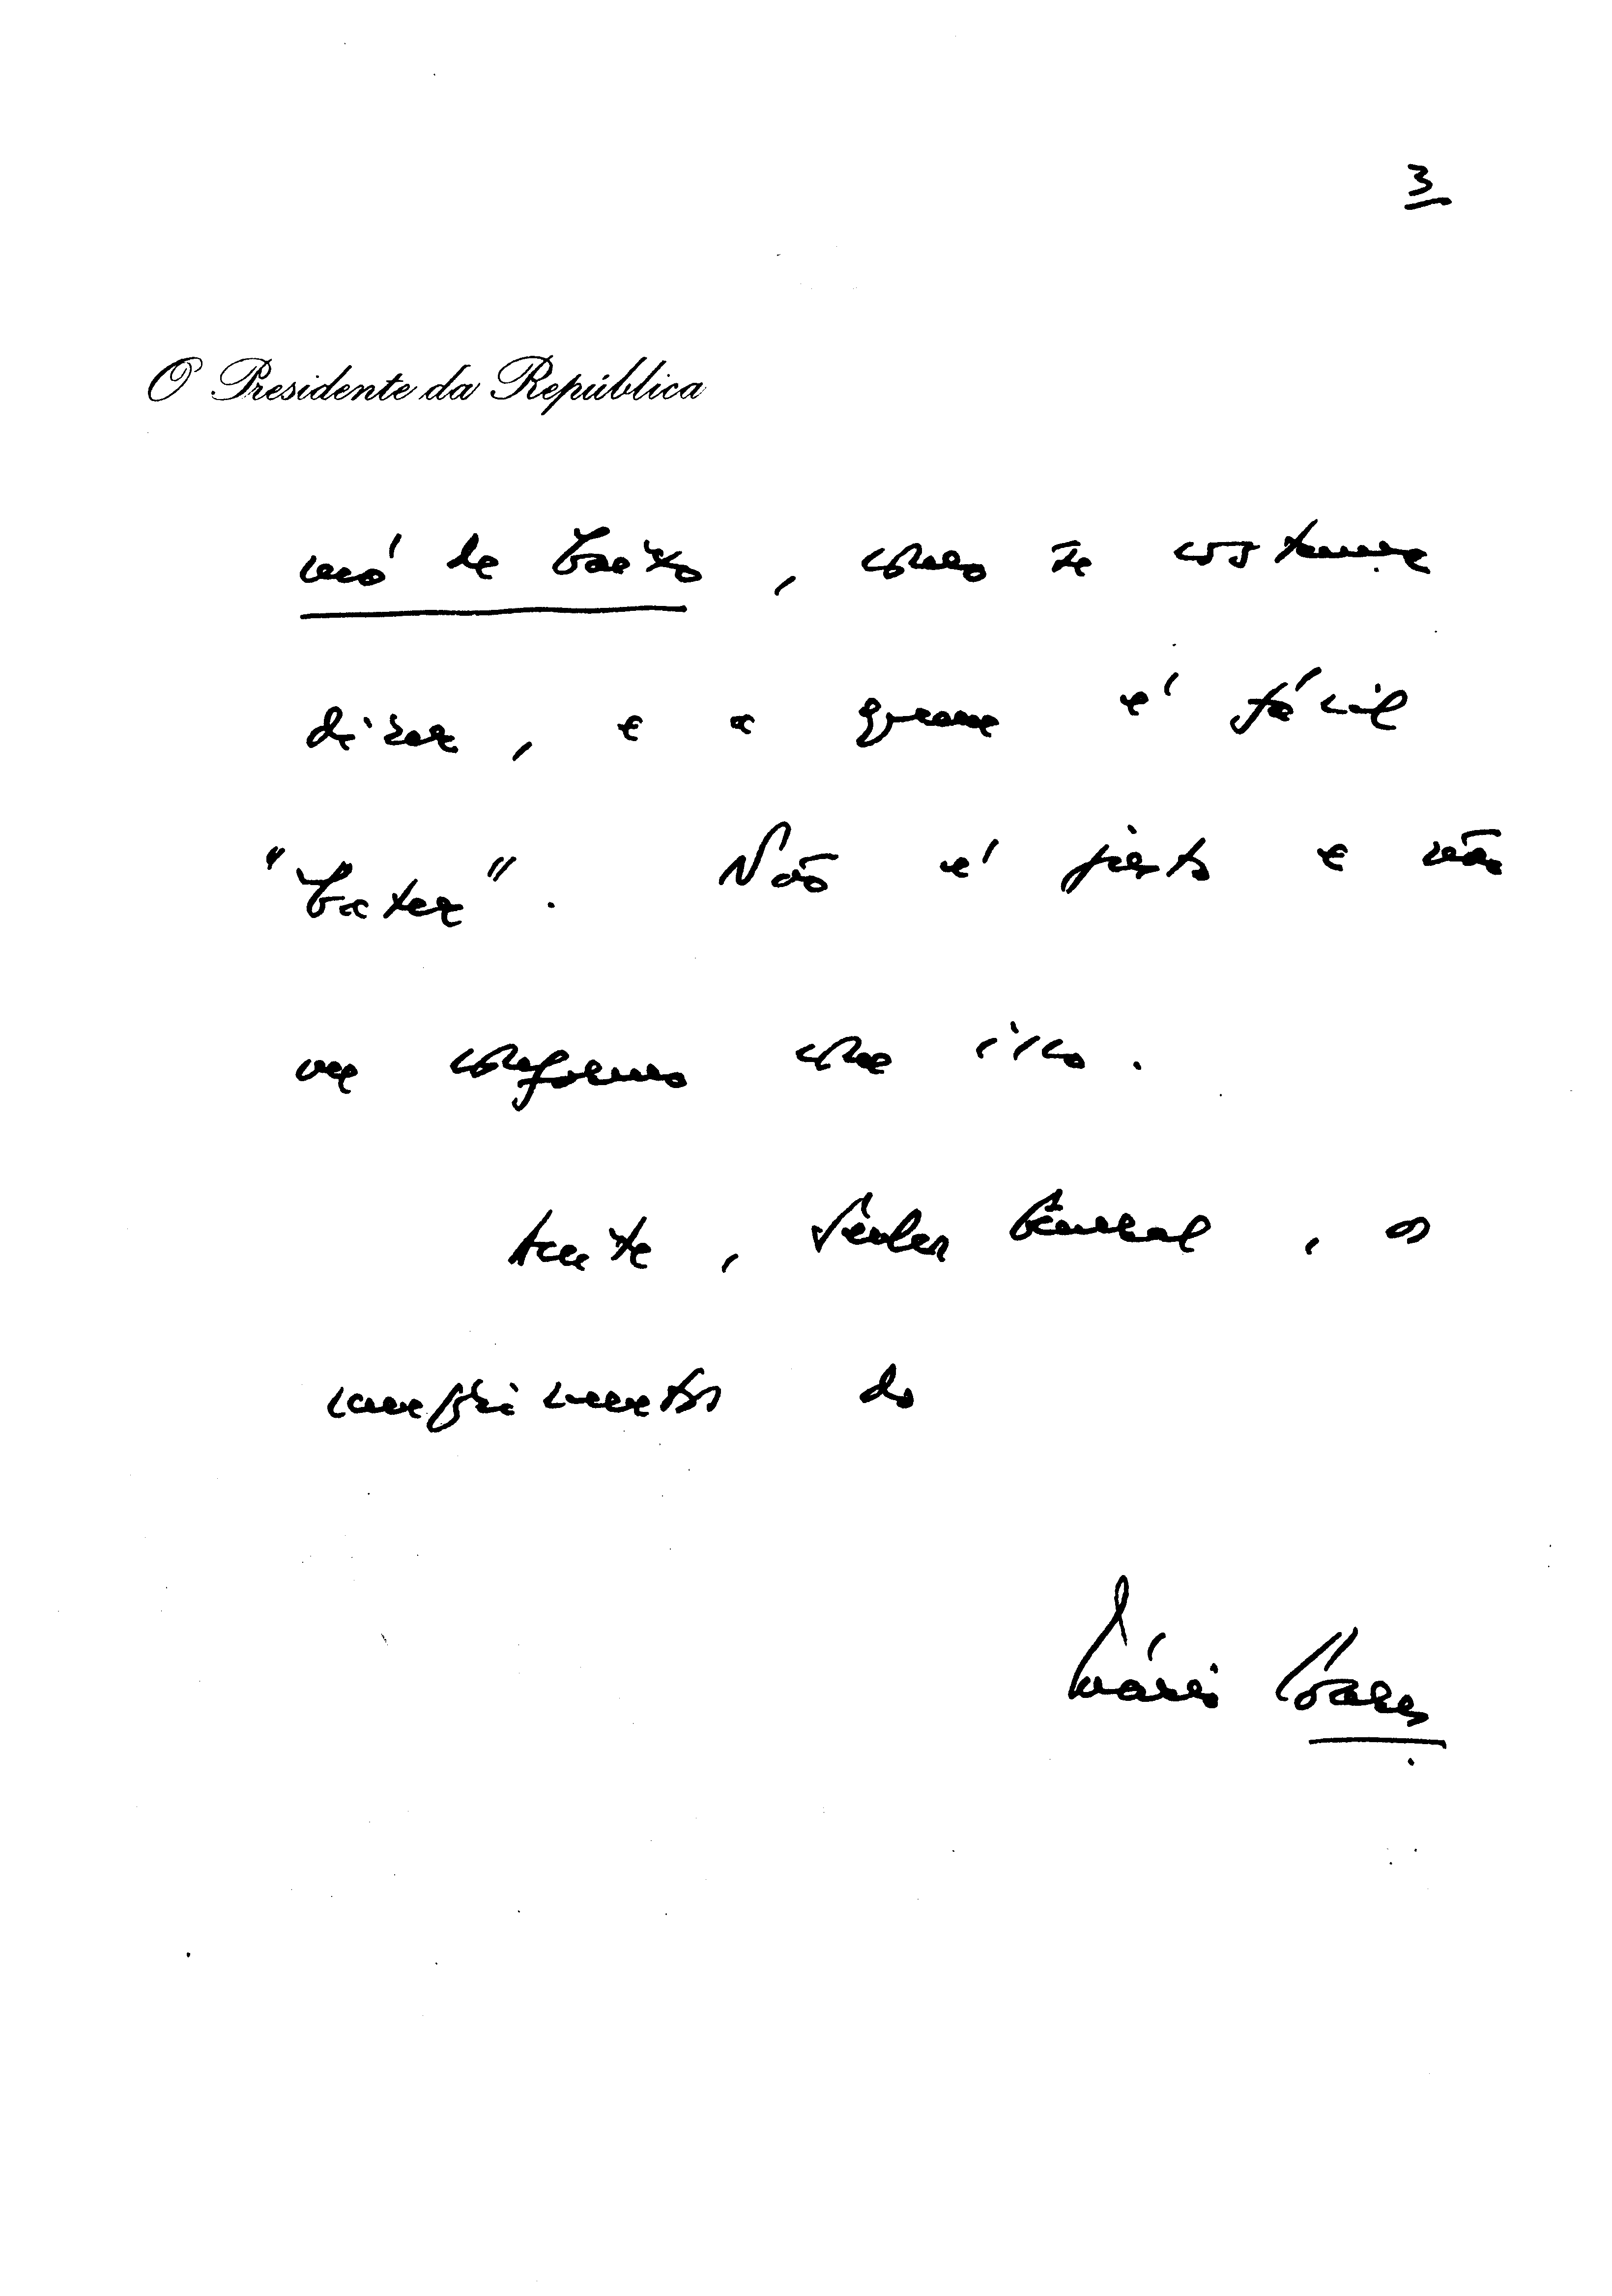 3
O Presidente da República
mó de baixo, como se costuma
dizer, e a quem é fácil
"bater". Não é justo e não
me conformo com isso.
Aceite, Senhor General, os
cumprimentos do
Mário Soares